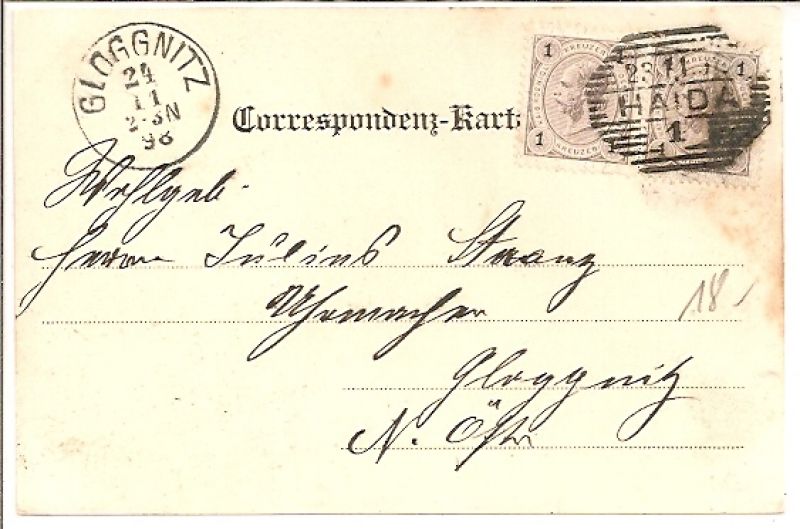 GLOGGNITZ
24
11
2-3N
98
1 KREUZER 1
1 KREUZER 1
1
1
23 11
HAIDA
1
Correspondenz-Karte
Wohlgeb.
Herrn Julius Stranz
Uhrmacher
18
Gloggnitz
N. Östr